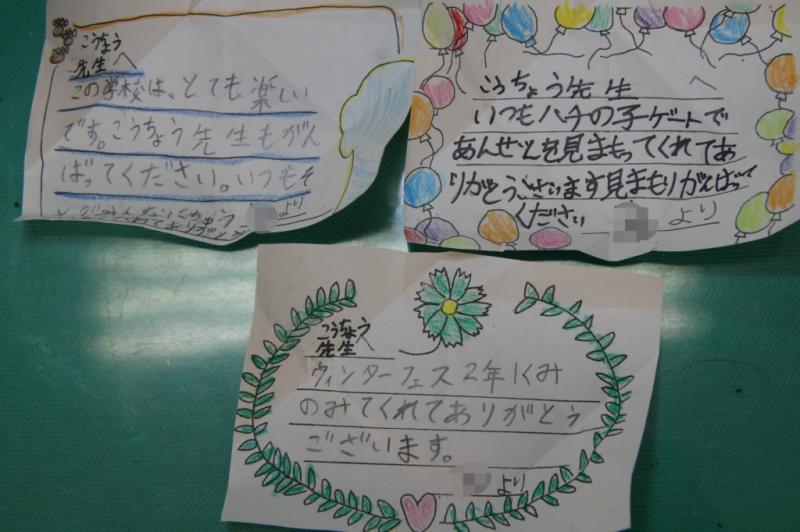 こうちょう
先生へ
この学校は、とても楽しい
です。こうちょう先生もがん
ばってください。いつもそ
てくれてありがとう
より
こうちょう先生へ
いつもハチの子ゲートで
あんぜんを見まもってくれてあ
りがとうございます見まもりがんばって
ください
より
こうちょう
先生へ
ウィンターフェス2年1くみ
のみてくれてありがとう
ございます。
より